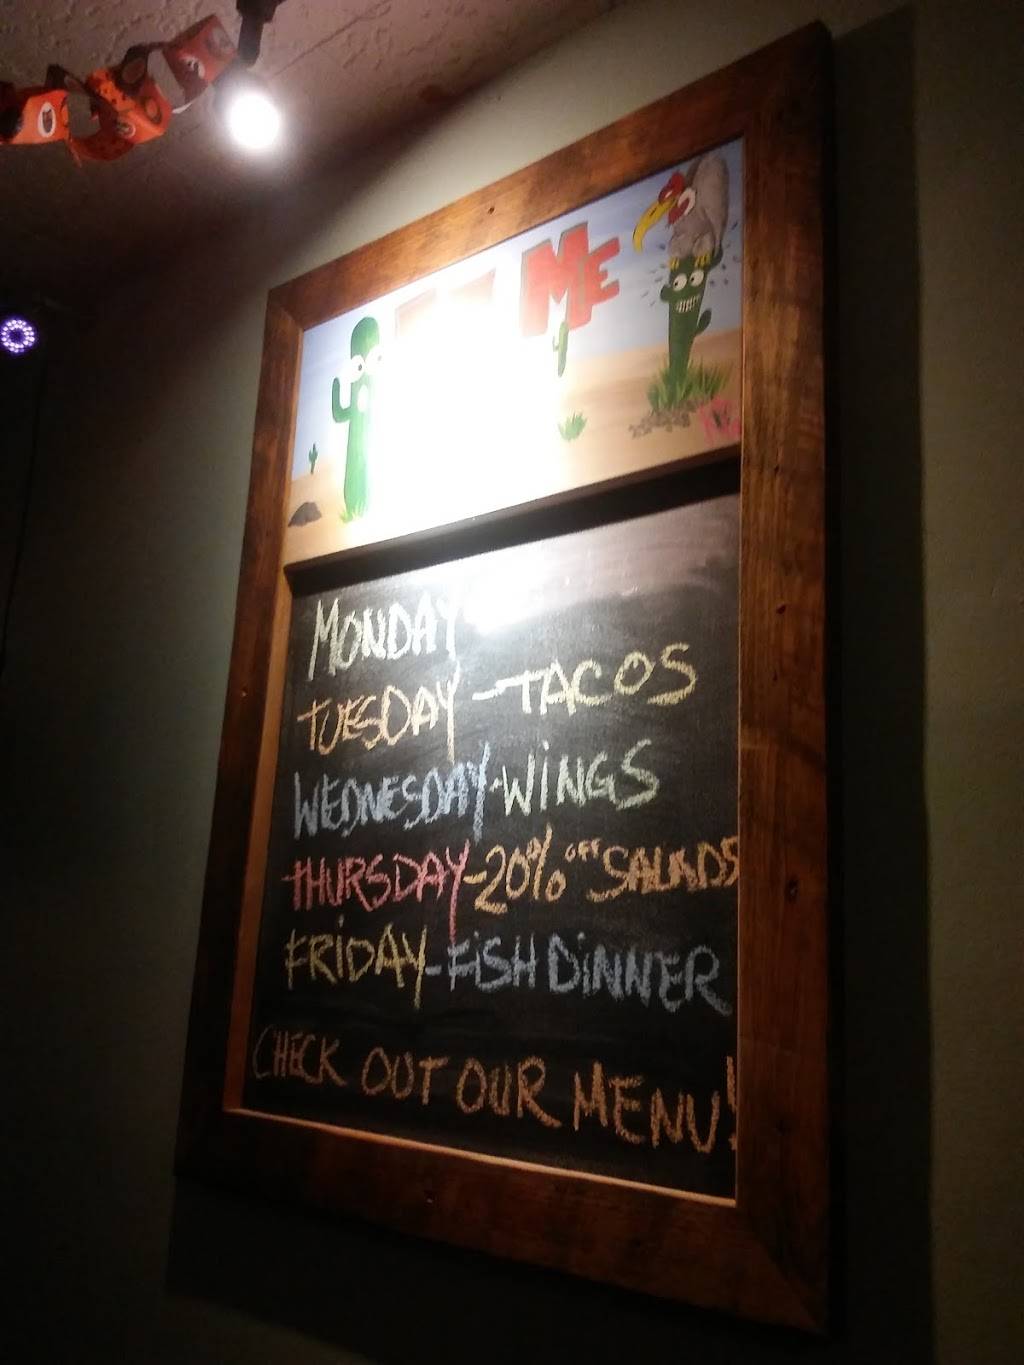 ME
MONDAY
TUESDAY-TACOS
WEDNESDAY-WiNGS
THURSDAY-20% OFF SALADS
FRiDAY-FiSH DiNNER
CHECK OUT OUR MENU!